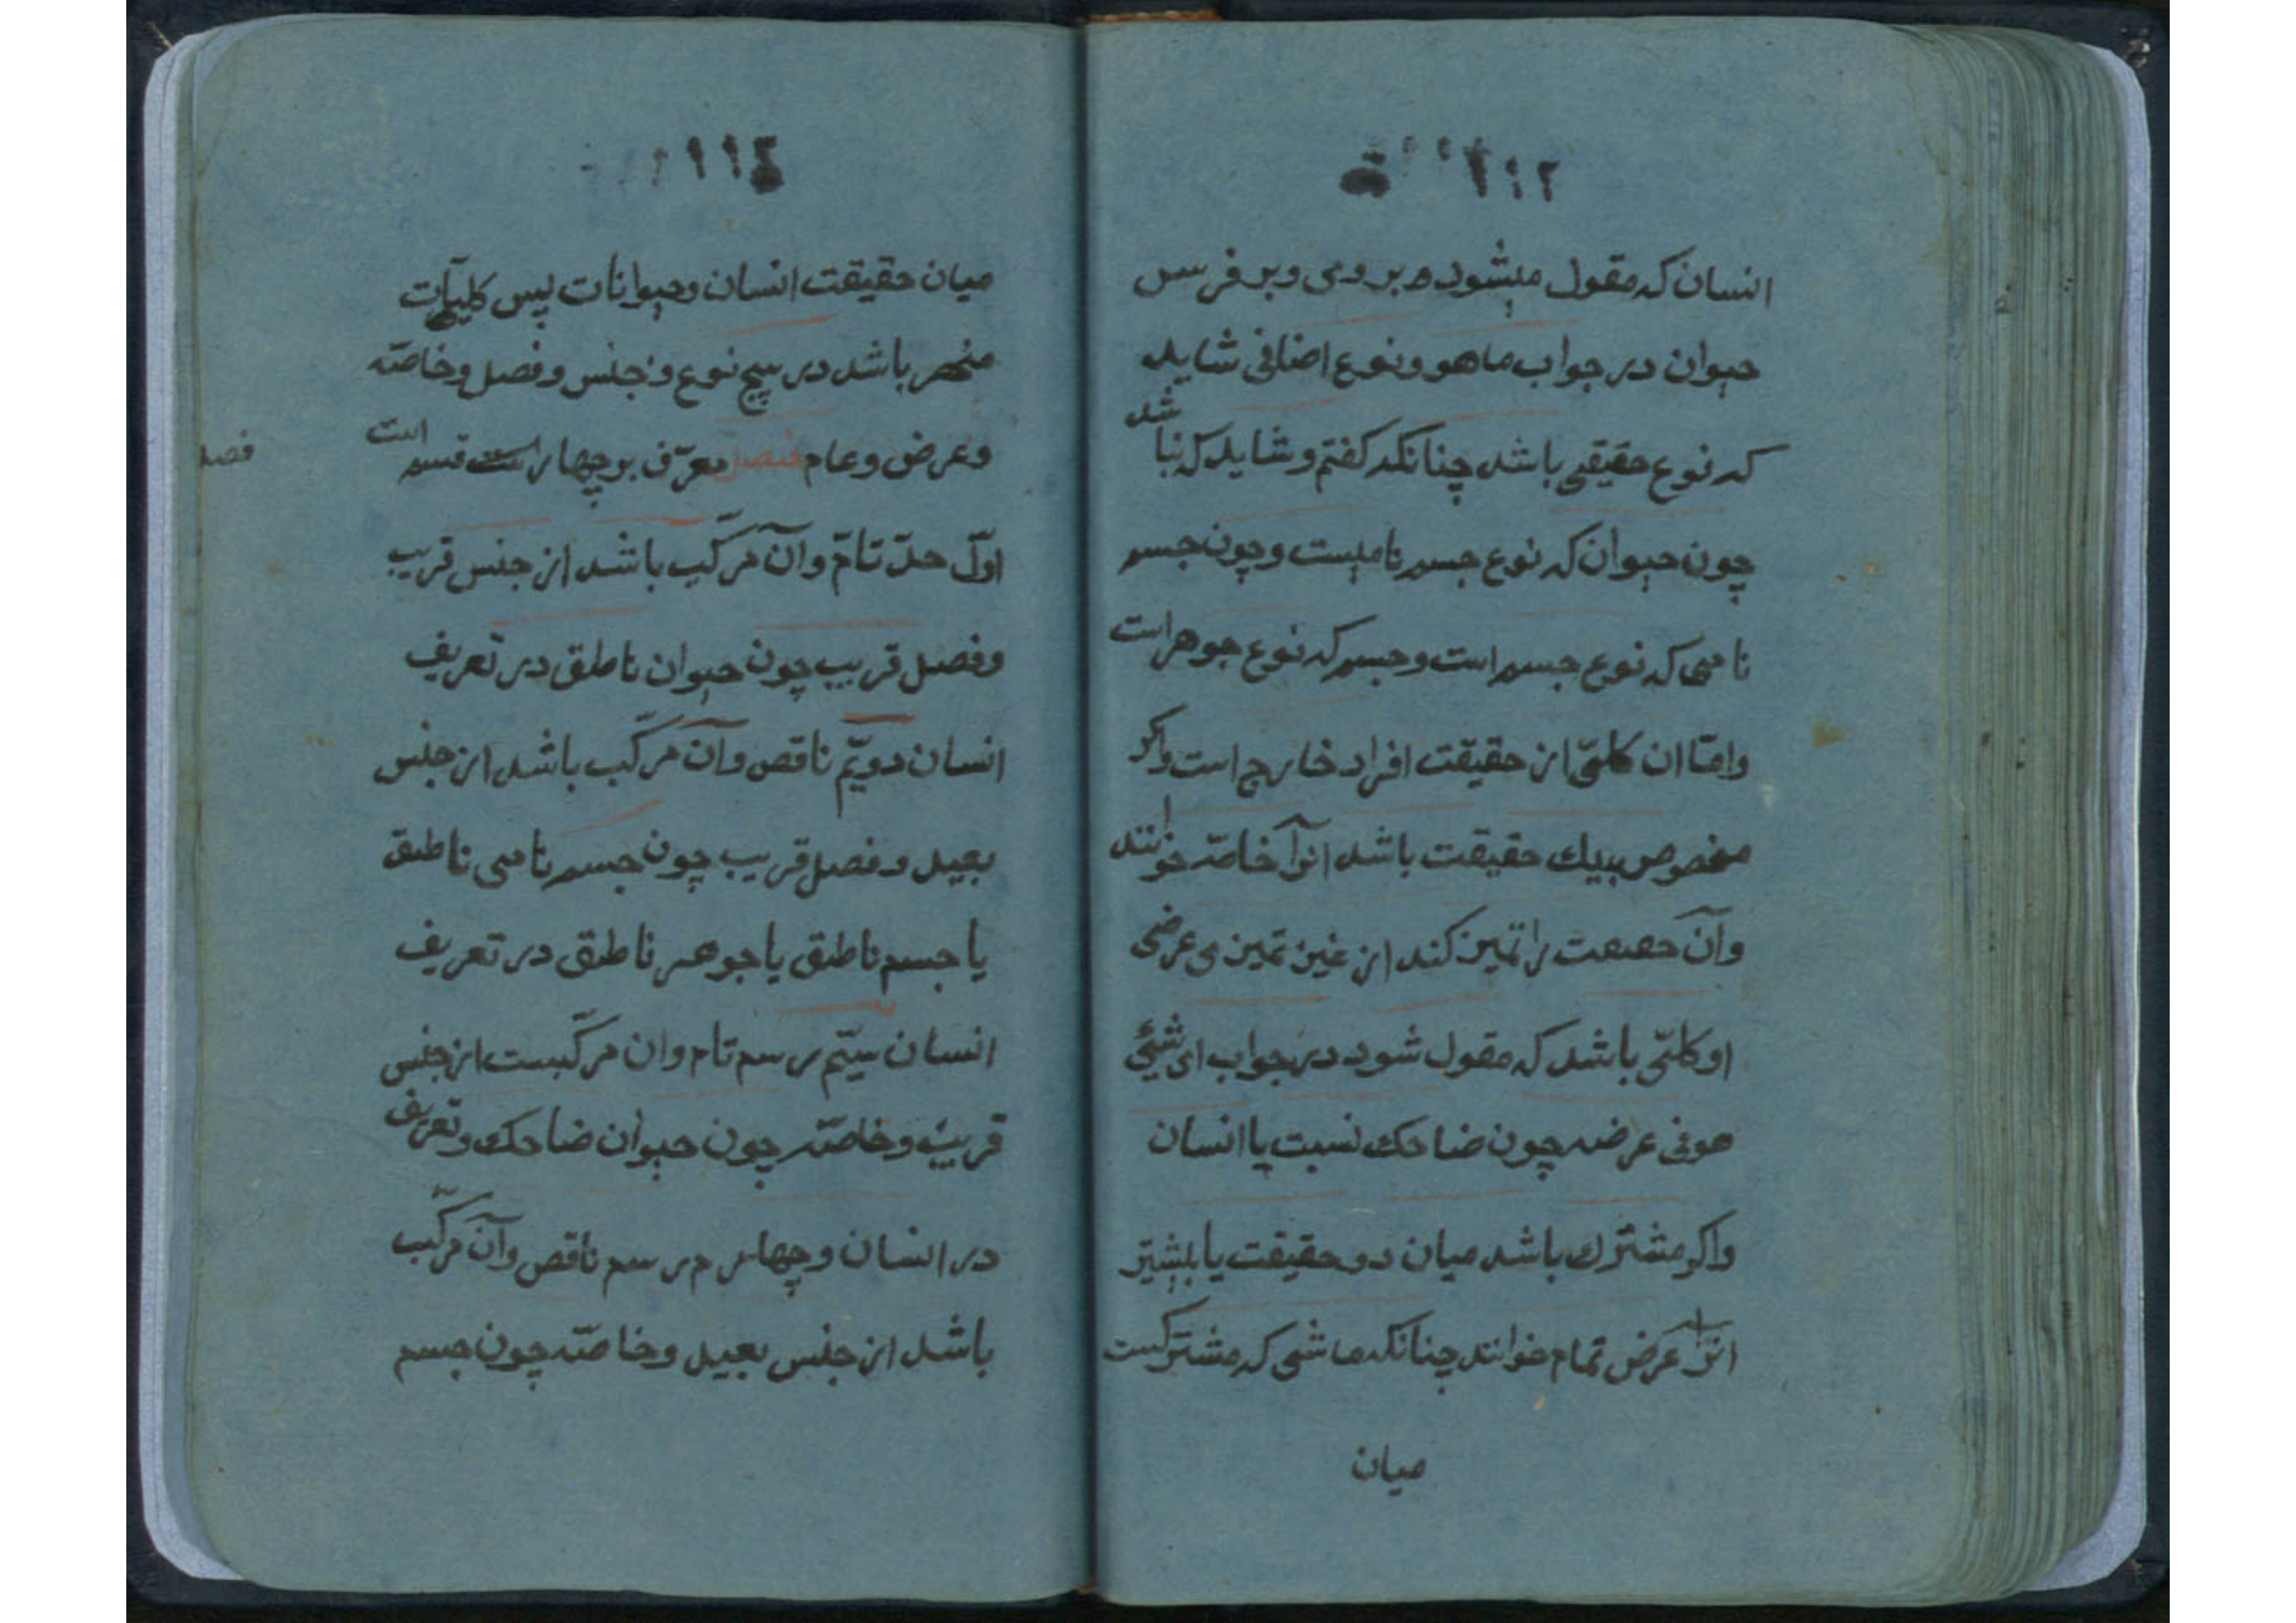 انسان که مقول میشود بر وی وبر فرس
حیوان در جواب ماهو ونوع اضافی شاید
که نوع حقیقی باشد چنانکه کفتم وشاید که نبا شد
چون حیوان که نوع جسم نامیست وچون جسم
نامی که نوع جسم است وجسم که نوع جوهر است
وامّا ان کلّی از حقیقت افراد خارج است واکر
مخصوص بیك حقیقت باشد انرآ خاصّه خوانند
وآن حقیقت را تمیز کند از غیر تمیز ی عرضی
او کلّی باشد که مقول شود در جواب ای شیئ
هو فی عرضه چون ضاحك نسبت با انسان
واکر مشترك باشد میان دو حقیقت یا بیشتر
انرا عرض تمام خوانند چنانکه ماشی که مشترکست
میان
۱۱٤
میان حقیقت انسان وحیوانات پس کلیآت
منحصر باشد در پیج نوع وجنس وفصل وخاصّه
وعرض وعام فصل معرّف بر چهار است قسم است
فصل
اوّل حدّ تامّ وآن مرکّب باشد از جنس قریب
وفصل قریب چون حیوان ناطق در تعریف
انسان دویّم ناقص وآن مرکّب باشد از جنس
بعید وفصل قریب چون جسم نامی ناطق
یا جسم ناطق یا جوهر ناطق در تعریف
انسان سیّم رسم تام وان مرکّبست از جنس
قریب وخاصّه چون حیوان ضاحك وتعریف
در انسان وچهارم رسم ناقص وآن مرکّب
باشد از جنس بعید وخاصّه چون جسم